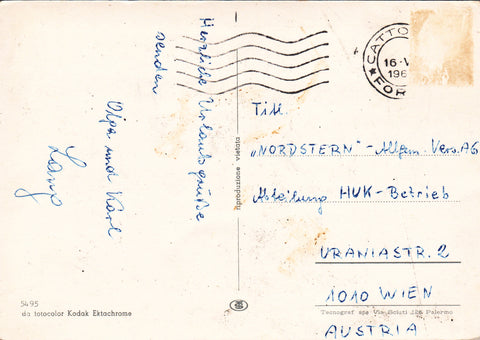 Herzliche Urlaubsgrüße
senden
Olga und Karl
CATTO
16-V
196
FOR
Titl.
„NORDSTERN“-Allgem. Vers. AG
Abteilung HUK-Betrieb
URANIASTR. 2
1010 WIEN
AUSTRIA
riproduzione vietata
5495
da fotocolor Kodak Ektachrome
Tecnograf spa Via Sciuti 126 Palermo